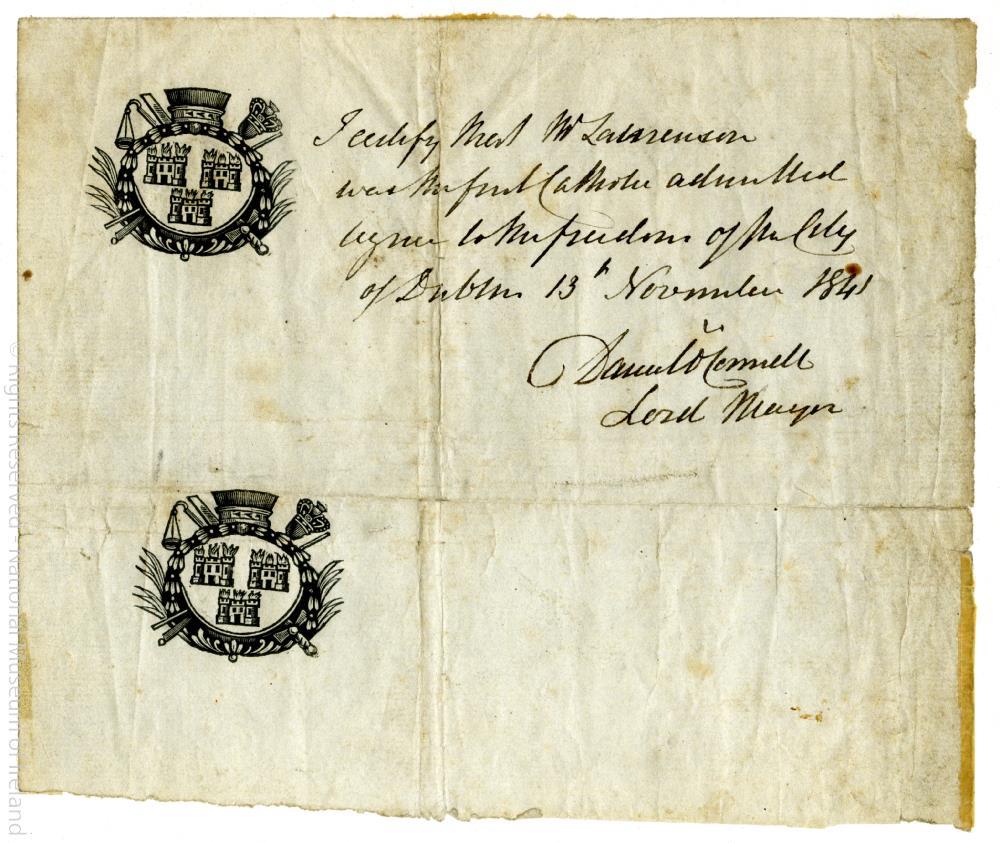 I certify that Mr Lawrenson
was the first Catholic admitted
by me to the freedom of the City
of Dublin 13th November 1841
Daniel O'Connell
Lord Mayor
© Rights Reserved - National Museum of Ireland